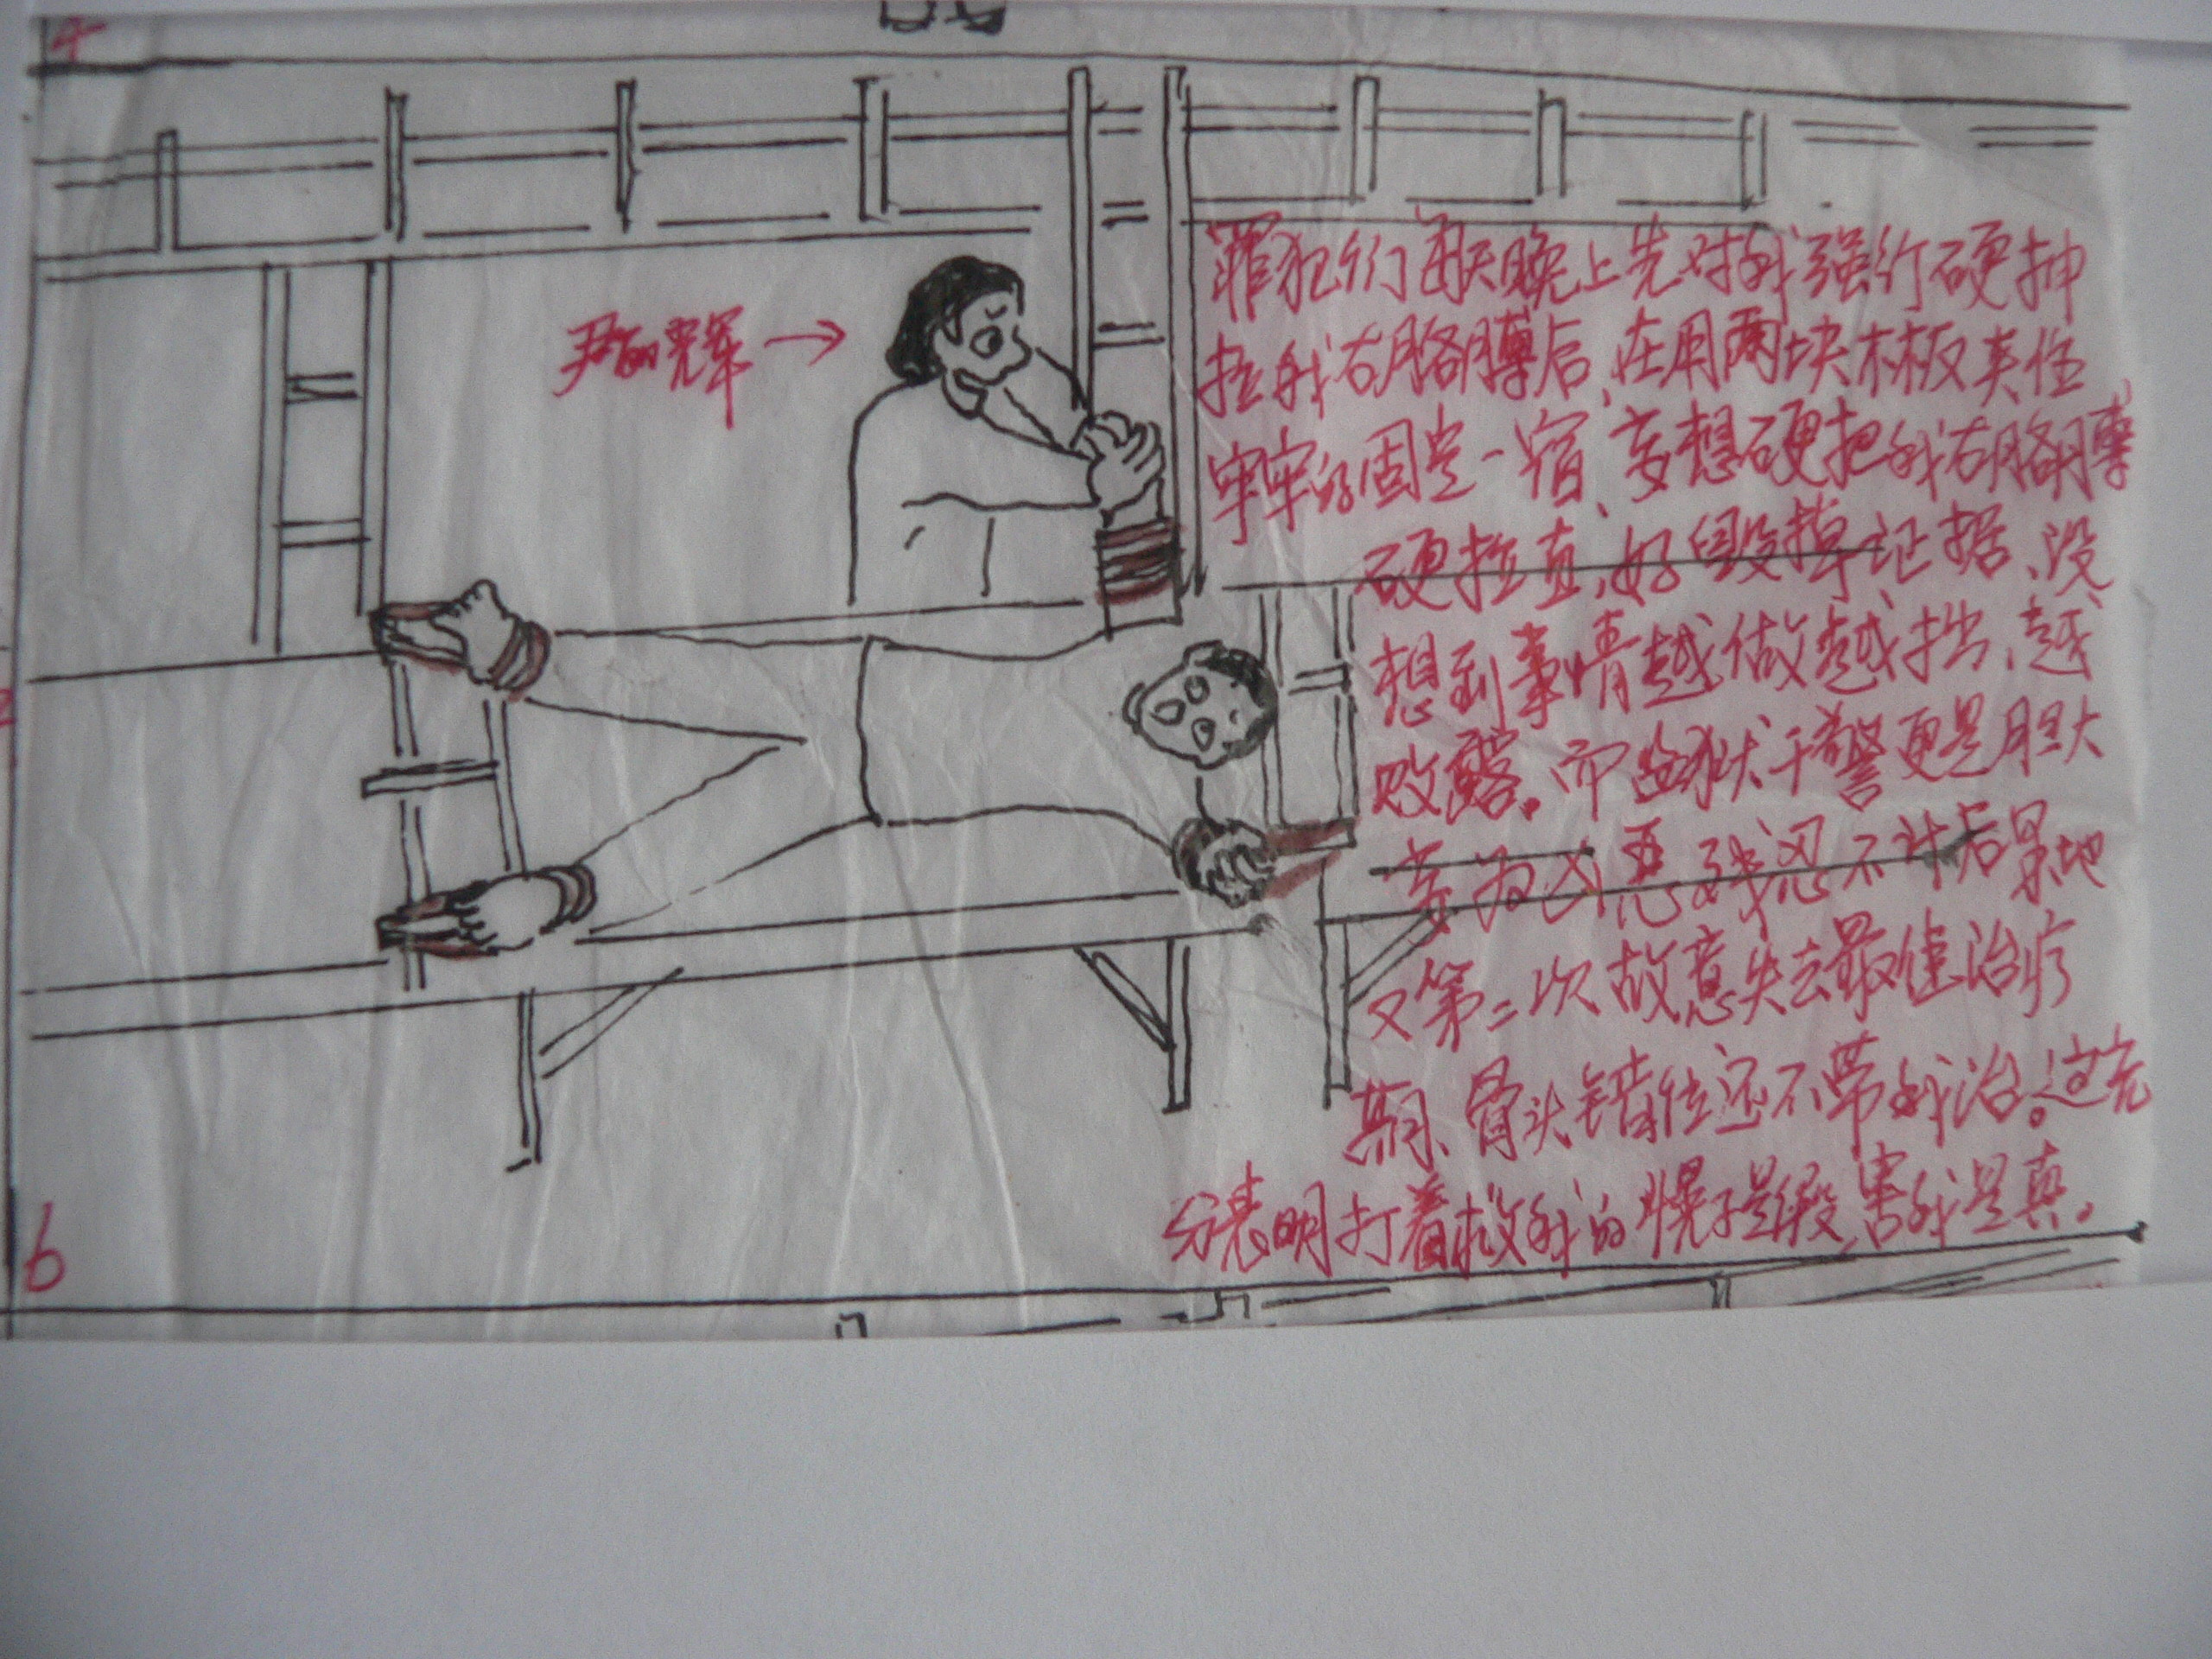 4
尹 光军 →
罪犯们每天晚上先对我强行硬抻
拉我右胳膊后、在用两块木板夹住
牢牢的固定一宿、妄想硬把我右胳膊
硬拉直、好毁掉证据、没
想到事情越做越拙、越
败露。而监狱干警更是胆大
妄为凶恶残忍不计后果地
又第二次故意失去最佳治疗
期、骨头错位还不带我治。这充
分表明打着救我的幌子是假、害我是真。
6